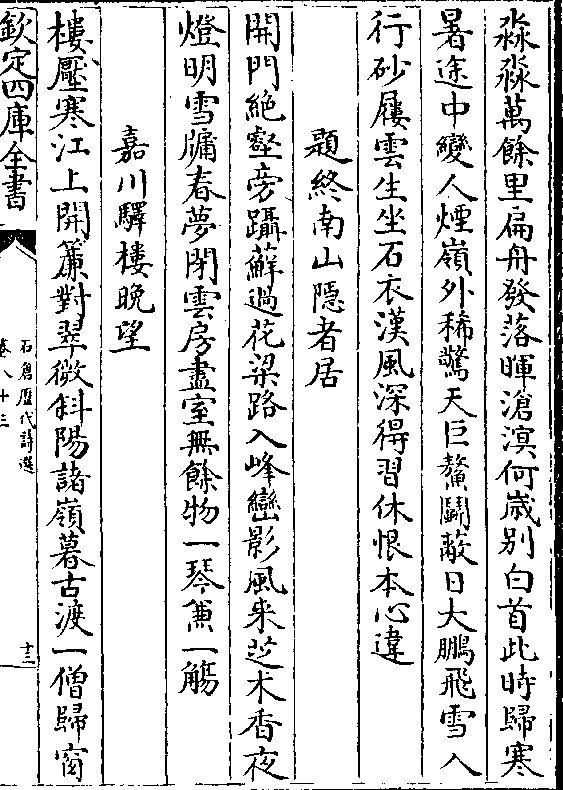 淼淼萬餘里扁舟發落暉滄溟何歲别白首此時歸寒
暑途中變人煙嶺外稀驚天巨鼇鬬蔽日大鵬飛雪入
行砂屨雲生坐石衣漢風深得習休恨本心違
題終南山隱者居
開門絶壑旁躡蘚過花梁路入峰巒影風来芝术香夜
燈明雪牖春夢閉雲房盡室無餘物一琴兼一觴
嘉川驛樓晚望
樓壓寒江上開簾對翠微斜陽諸嶺暮古渡一僧歸窗
欽定四庫全書
石倉歷代詩選
卷八十三
十二